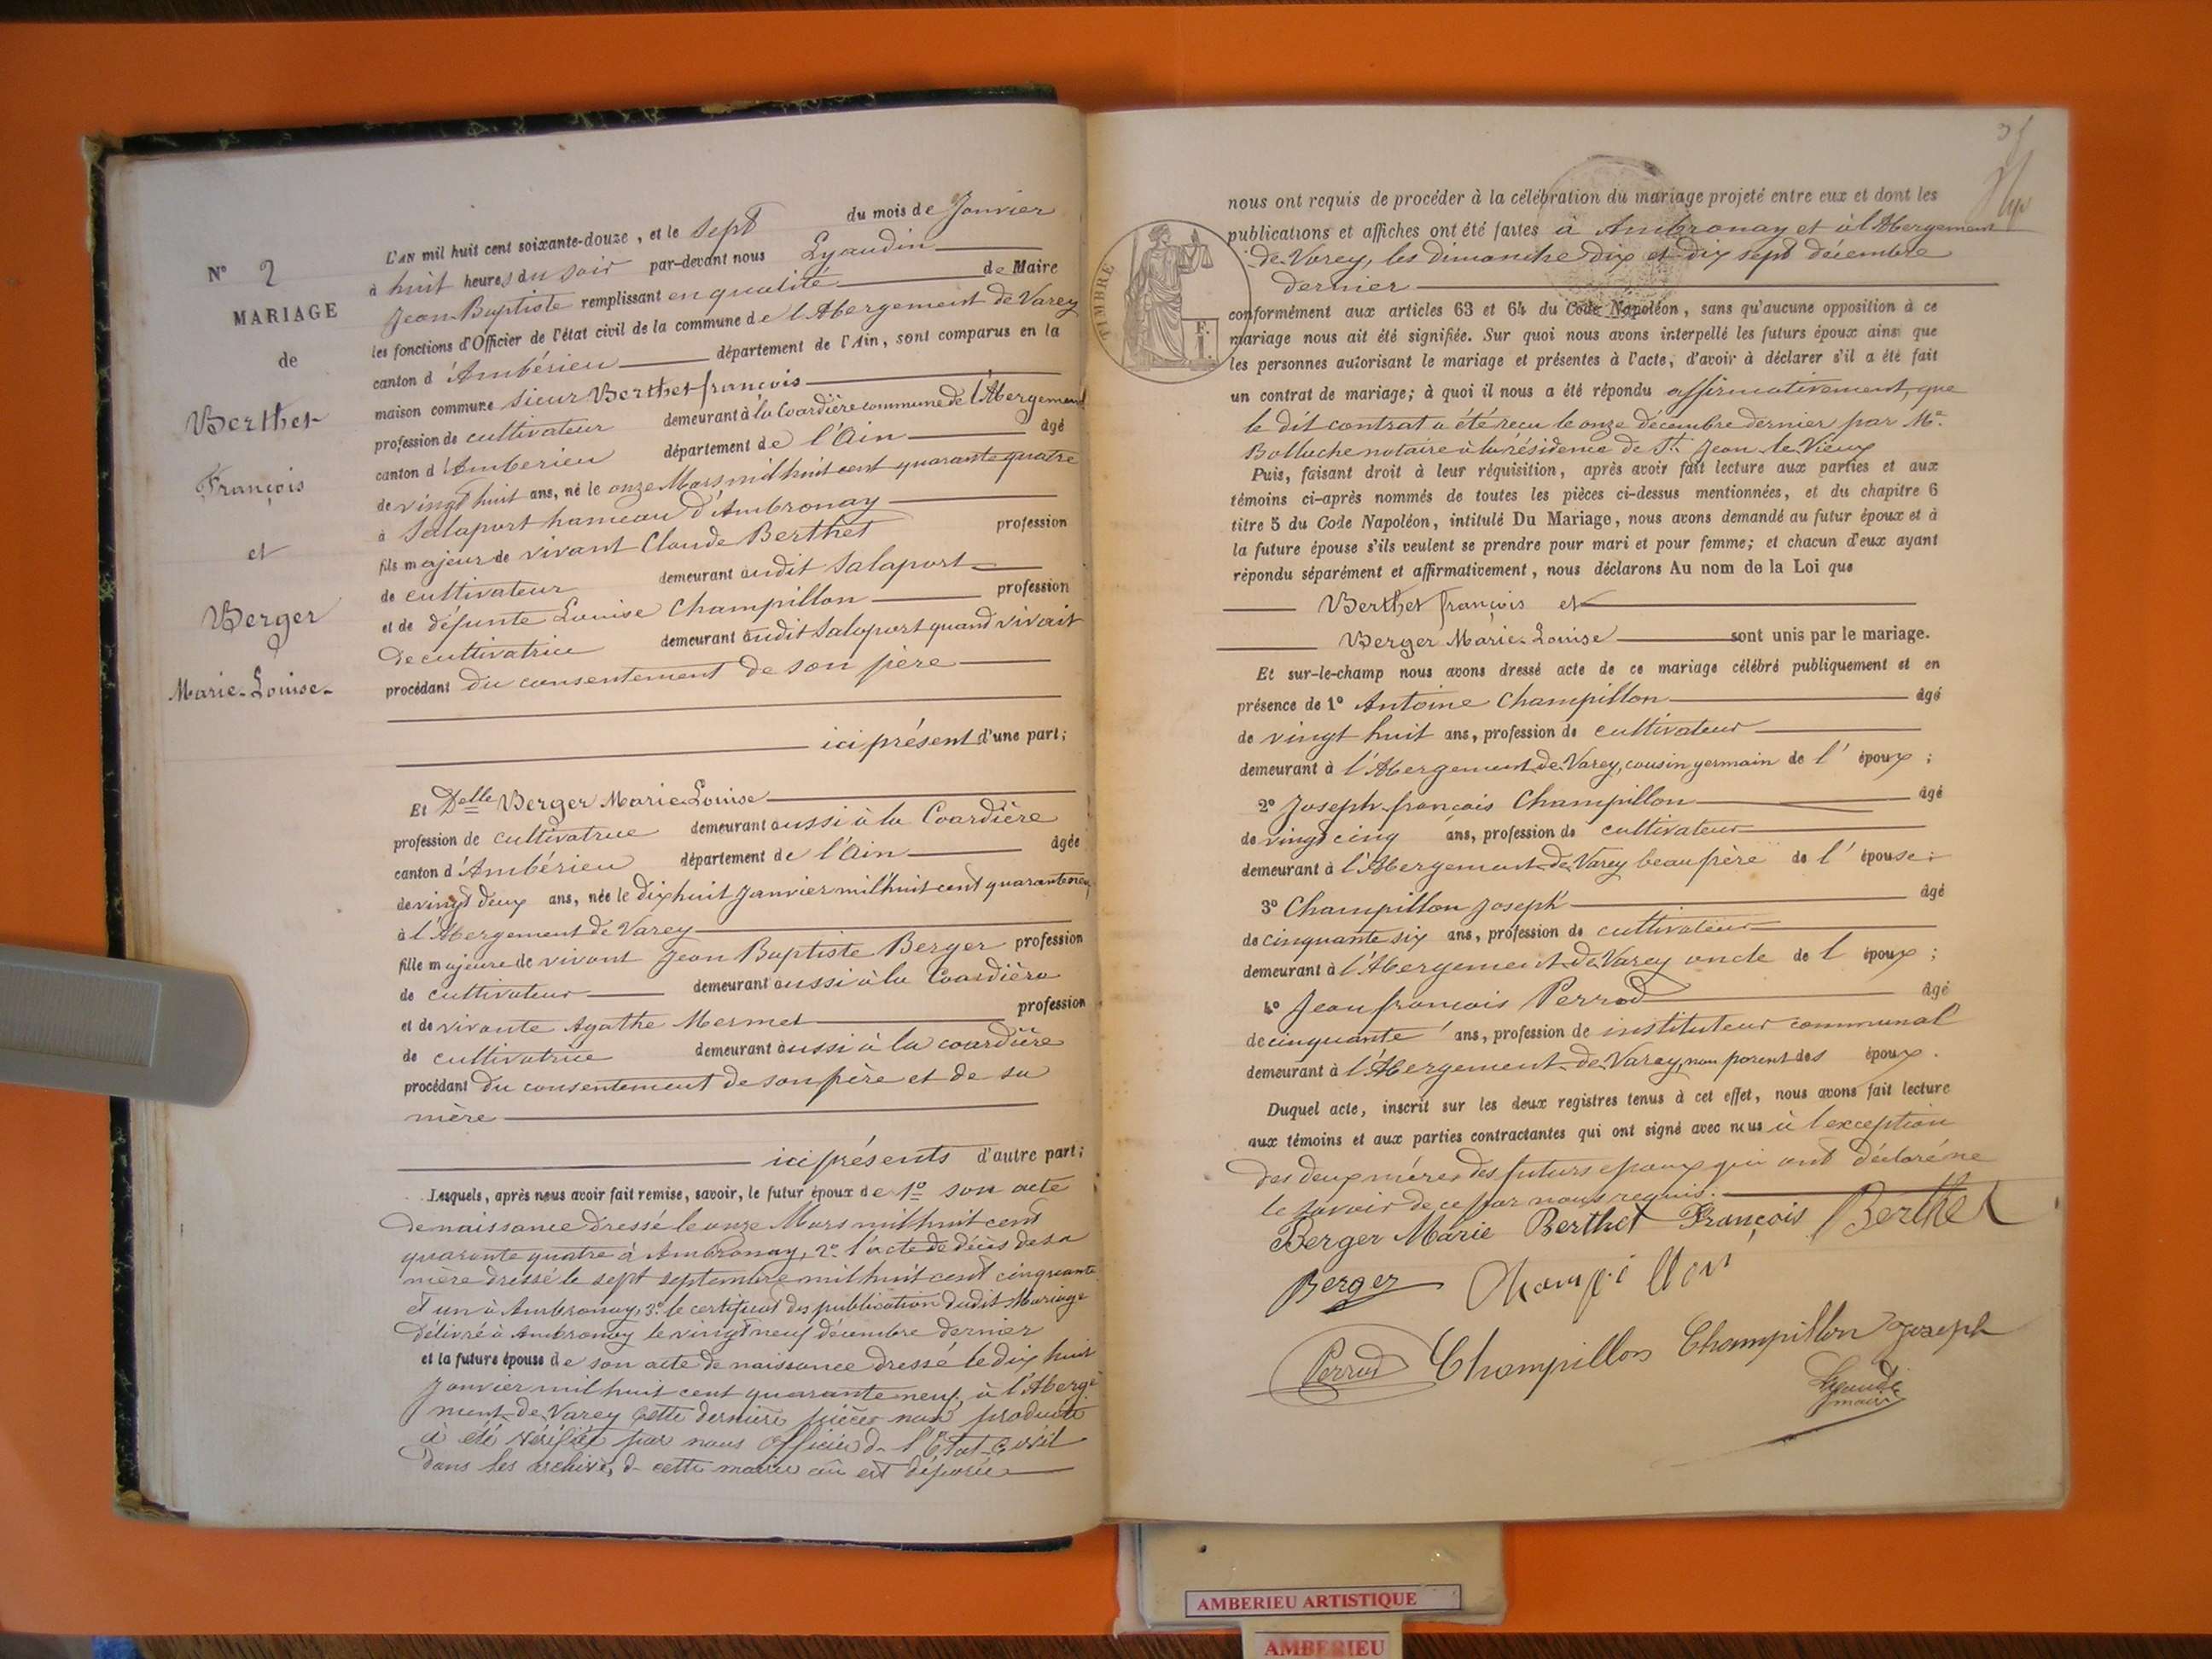 N° 2
MARIAGE
de
Berthet
François
et
Berger
Marie-Louise
L'AN mil huit cent soixante-douze, et le sept du mois de Janvier
à huit heures du soir par-devant nous Lyaudin
Jean-Baptiste remplissant en qualité de Maire
les fonctions d'Officier de l'état civil de la commune de l'Abergement de Varey
canton d'Ambérieu département de l'Ain, sont comparus en la
maison commune sieur Berthet françois
profession de cultivateur demeurant à la Coardière commune de l'Abergement
canton d'Amberieu département de l'Ain âgé
de vingt huit ans, né le onze Mars mil huit cent quarante quatre
à Salaport hameau d'Ambronay
fils majeur de vivant Claude Berthet profession
de cultivateur demeurant audit Salaport
et de défunte Louise Champillon profession
de cultivatrice demeurant audit Salaport quand vivait
procédant du consentement de son père
ici présent d'une part;
Et Delle Berger Marie Louise
profession de cultivatrice demeurant aussi à la Coardière
canton d'Ambérieu département de l'Ain âgée
de vingt deux ans, née le dix huit Janvier mil huit cent quarante neuf
à l'Abergement de Varey
fille majeure de vivant Jean Baptiste Berger profession
de cultivateur demeurant aussi à la Coardière
et de vivante Agathe Mermet profession
de cultivatrice demeurant aussi à la coardière
procédant du consentement de son père et de sa
mère
ici présents d'autre part;
Lesquels, après nous avoir fait remise, savoir, le futur époux de 1° son acte
de naissance dressé le onze Mars mil huit cent
quarante quatre à Ambronay, 2° l'acte de décès de sa
mère dressé le sept septembre mil huit cent cinquante
et un à Ambronay, 3° le certificat des publication dudit Mariage
délivré à Ambronay le vingt neuf décembre dernier
et la future épouse de son acte de naissance dressé le dix huit
Janvier mil huit cent quarante neuf, à l'Aberge
ment de Varey Cette dernière pièce non produite
à été vérifiée par nous officier de l'Etat-civil
dans les archives de cette mairie où est déposée
TIMBRE
F.
I.
nous ont requis de procéder à la célébration du mariage projeté entre eux et dont les
publications et affiches ont été faites à Ambronay et à l'Abergement
de Varey, les dimanche dix et dix sept décembre
dernier
conformément aux articles 63 et 64 du Code Napoléon, sans qu'aucune opposition à ce
mariage nous ait été signifiée. Sur quoi nous avons interpellé les futurs époux ainsi que
les personnes autorisant le mariage et présentes à l'acte, d'avoir à déclarer s'il a été fait
un contrat de mariage; à quoi il nous a été répondu affirmativement, que
le dit contrat a été reçu le onze décembre dernier par Me
Bolluche notaire à la résidence de St Jean le Vieux
Puis, faisant droit à leur réquisition, après avoir fait lecture aux parties et aux
témoins ci-après nommés de toutes les pièces ci-dessus mentionnées, et du chapitre 6
titre 5 du Code Napoléon, intitulé Du Mariage, nous avons demandé au futur époux et à
la future épouse s'ils veulent se prendre pour mari et pour femme; et chacun d'eux ayant
répondu séparément et affirmativement, nous déclarons Au nom de la Loi que
Berthet françois et
Berger Marie-Louise sont unis par le mariage.
Et sur-le-champ nous avons dressé acte de ce mariage célébré publiquement et en
présence de 1° Antoine Champillon âgé
de vingt huit ans, profession de cultivateur
demeurant à l'Abergement de Varey, cousin germain de l'époux;
2° Joseph françois Champillon âgé
de vingt cinq ans, profession de cultivateur
demeurant à l'Abergement de Varey beau frère de l'épouse;
3° Champillon Joseph âgé
de cinquante six ans, profession de cultivateur
demeurant à l'Abergement de Varey oncle de l'époux;
4° Jean françois Perrod âgé
de cinquante ans, profession de instituteur communal
demeurant à l'Abergement de Varey, non parent des époux.
Duquel acte, inscrit sur les deux registres tenus à cet effet, nous avons fait lecture
aux témoins et aux parties contractantes qui ont signé avec nous à l'exception
des deux mères des futurs epoux qui ont déclaré ne
le savoir de ce par nous requis.
Berger Marie Berthet François Berthet
Berger Champillon
Perrod Champillon Champillon Joseph
maire
AMBERIEU ARTISTIQUE
AMBERIEU